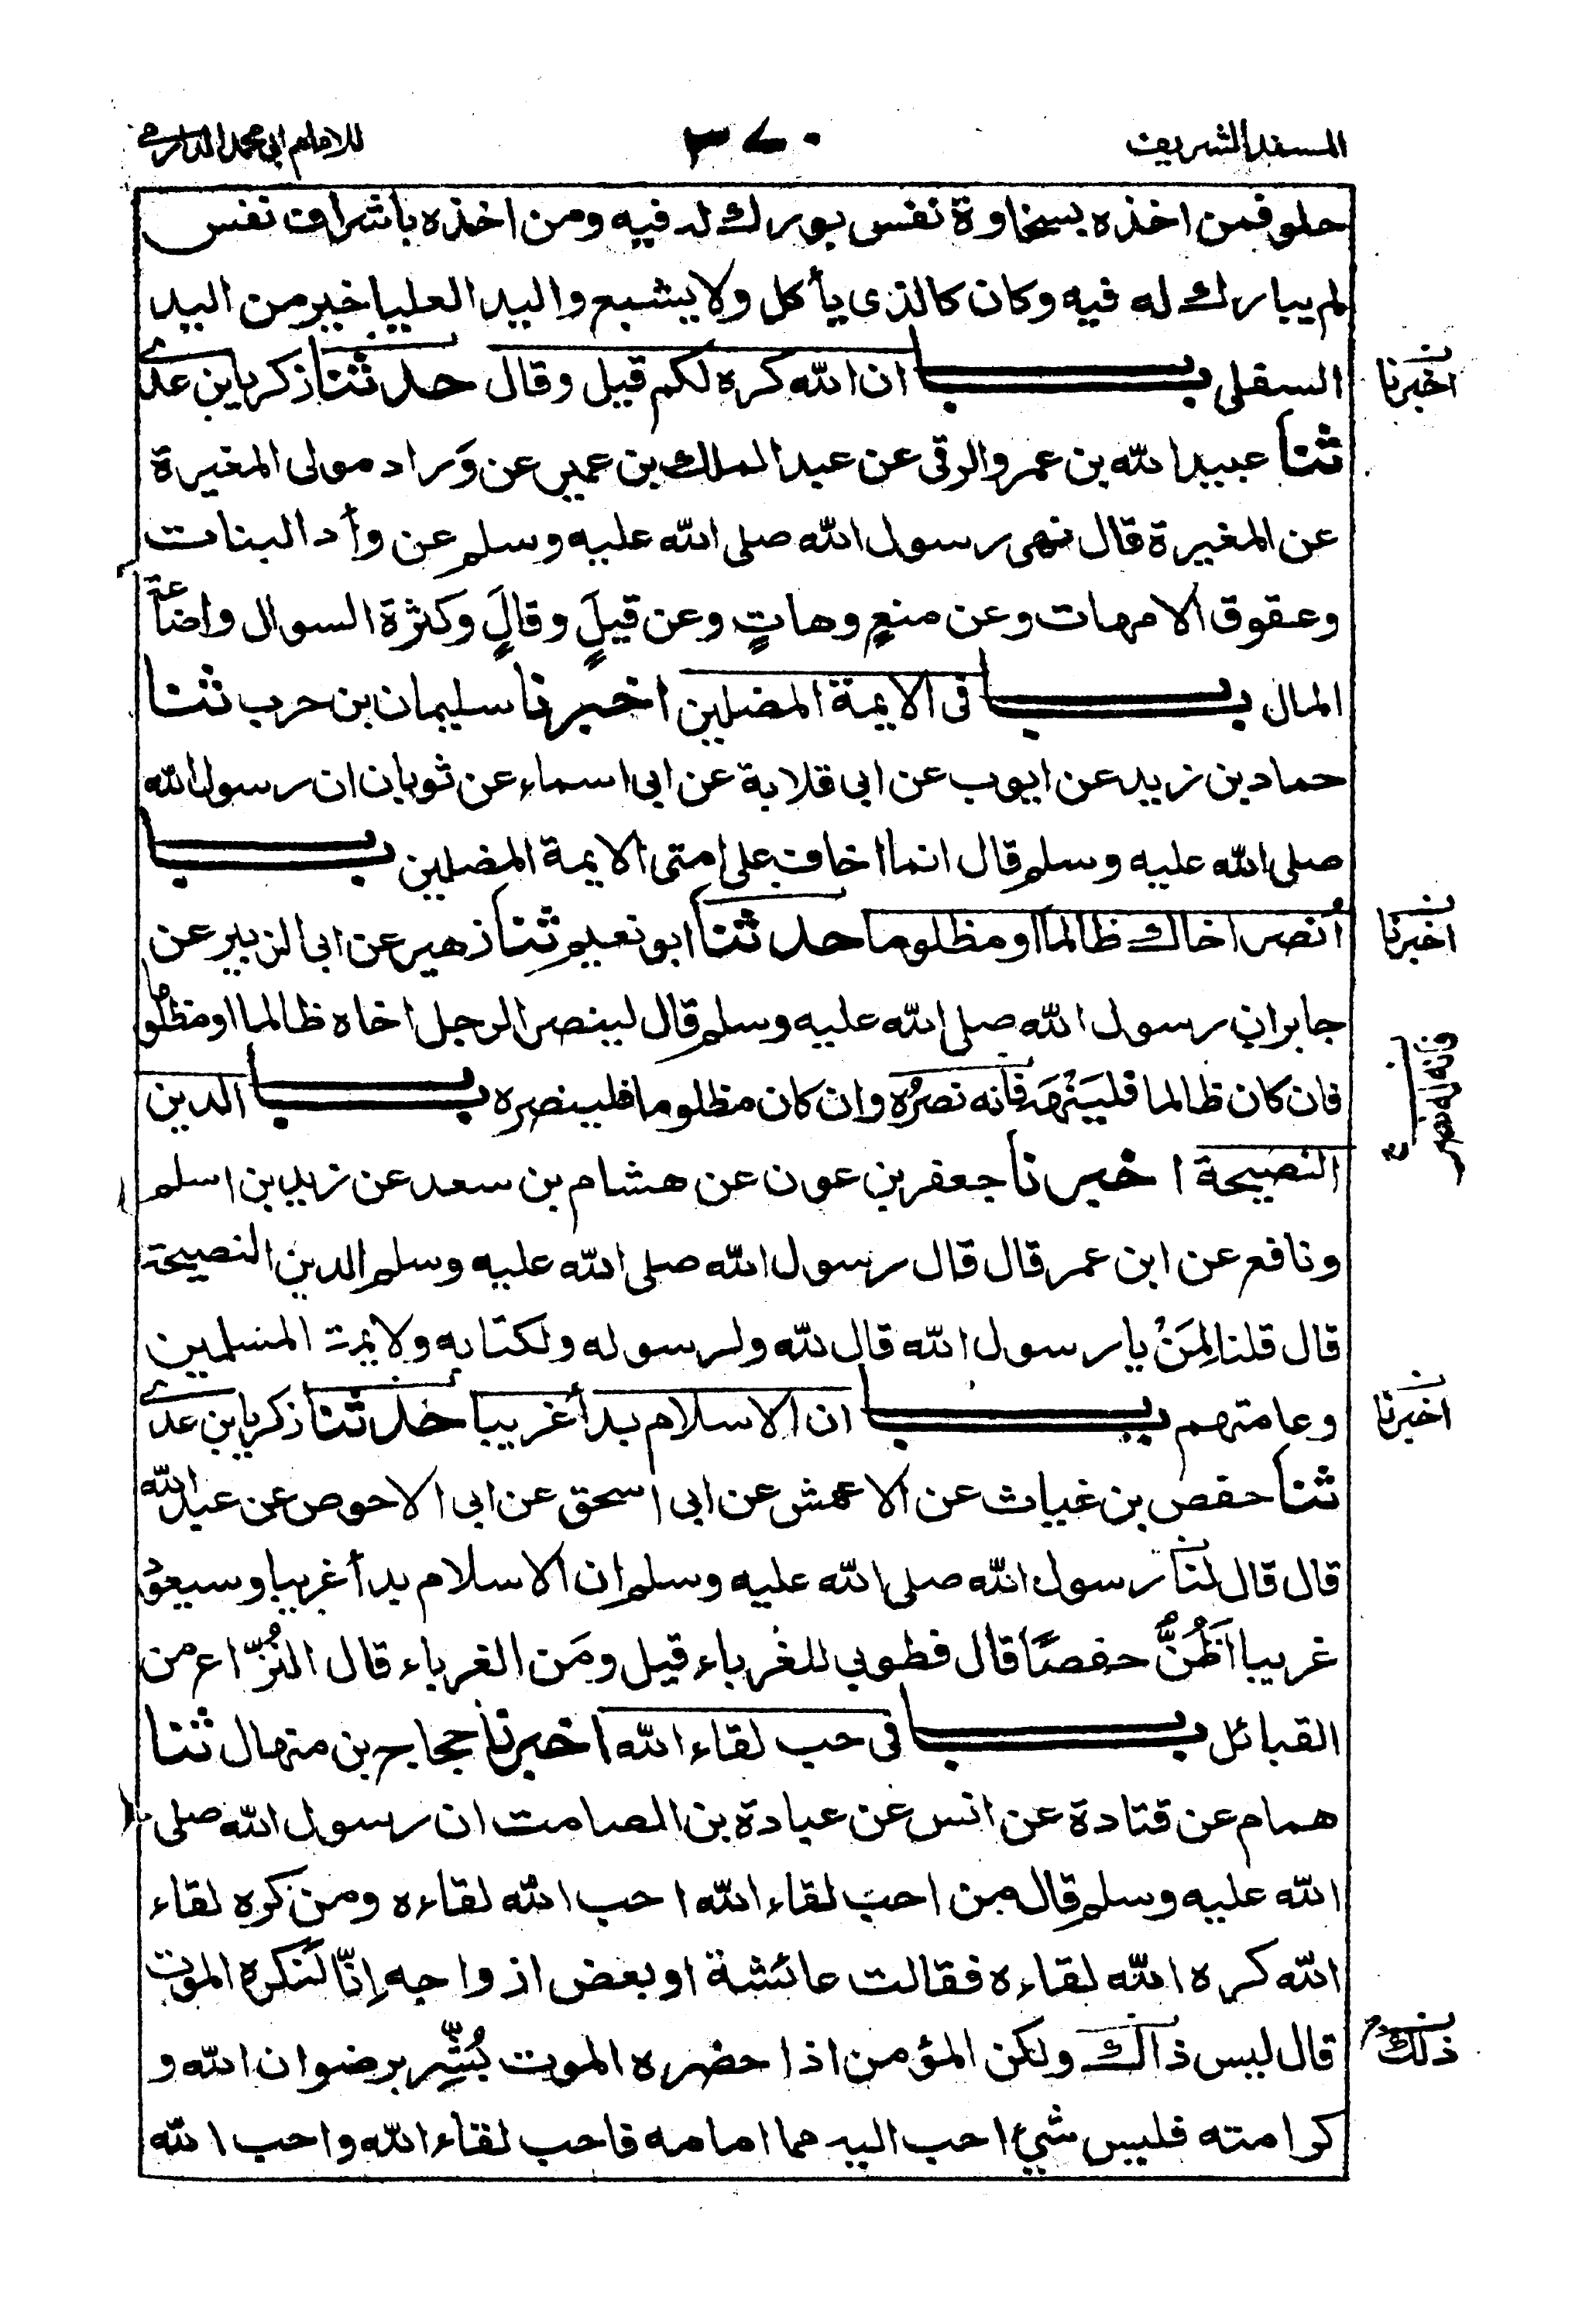 المسند الشريف
٣٧٠
للامام ابی محمد الدارمی
حلو فمن اخذه بسخاوة نفس بورك له فيه ومن اخذه باشراف نفس
لم يبارك له فيه وكان كالذى يأكل ولا يشبع واليد العليا خير من اليد
السفلى بــــاب ان الله كره لكم قيل وقال حدثنا زكريا بن عدی
ثنا عبيد الله بن عمرو الرقى عن عبد الملك بن عمير عن وَراد مولى المغيرة
عن المغيرة قال نهى رسول الله صلى الله عليه وسلم عن وأد البنات
وعقوق الامهات وعن منعٍ وهاتٍ وعن قيلَ وقالٍ وكثرة السوال واضاعة
المال بــــاب فى الايمة المضلين اخبرنا سليمان بن حرب ثنا
حماد بن زيد عن ايوب عن ابى قلابة عن ابى اسماء عن ثوبان ان رسول الله
صلى الله عليه وسلم قال انما اخاف على امتى الايمة المضلين بــــاب
اُنصر اخاك ظالما او مظلوما حدثنا ابو نعيم ثنا زهير عن ابى الزبير عن
جابر ان رسول الله صلى الله عليه وسلم قال لينصر الرجل اخاه ظالما او مظلوما
فان كان ظالما فليَنْهَه فانه نصرُه وان كان مظلوما فلينصره بــــاب الدين
النصيحة اخبرنا جعفر بن عون عن هشام بن سعد عن زيد بن اسلم
ونافع عن ابن عمر قال قال رسول الله صلى الله عليه وسلم الدين النصيحة
قال قلنا لِمَنْ يا رسول الله قال لله ولرسوله ولكتابه ولايمة المسلمين
وعامتهم بــــاب ان الاسلام بدأ غريبا حدثنا زكريا بن عدی
ثنا حفص بن غياث عن الاعمش عن ابى اسحق عن ابى الاحوص عن عبد الله
قال قال لنا رسول الله صلى الله عليه وسلم ان الاسلام بدأ غريبا وسيعود
غريبا اَظُنُّ حفصًا قال فطوبى للغرباء قيل ومَن الغرباء قال النُزّاع من
القبائل بــــاب فى حب لقاء الله اخبرنا حجاج بن منهال ثنا
همام عن قتادة عن انس عن عبادة بن الصامت ان رسول الله صلى
الله عليه وسلم قال من احب لقاء الله احب الله لقاءه ومن كره لقاء
الله كره الله لقاءه فقالت عائشة او بعض ازواجه اِنّا لَنكره الموت
قال ليس ذاك ولكن المؤمن اذا حضره الموت بُشِّر برضوان الله و
كرامته فليس شئ احب اليه مما امامه فاحب لقاء الله واحب الله
اخبرنا
اخبرنا
فانه له نصر
اخبرنا
ذلك